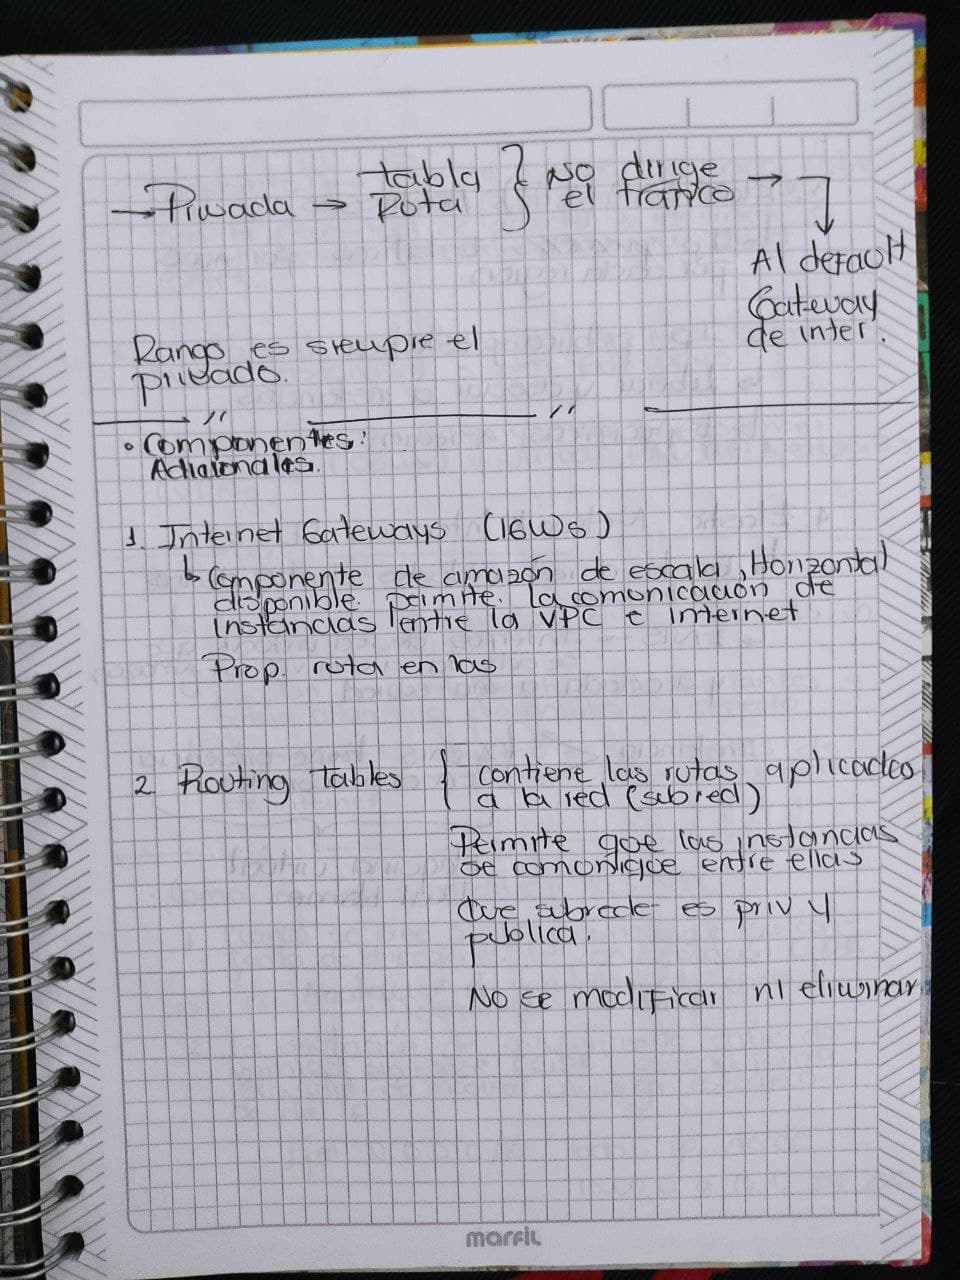 → Privada → tabla Ruta } No dirige el trafico →
Al default
Gateway
de inter.
Rango es siempre el
privado.
• Componentes:
Adicionales.
1. Internet Gateways (IGWs)
↳ Componente de amazon de escala, Horizontal
disponible. permite. la comunicación de
instancias entre la VPC e internet
Prop. ruta en las
2. Routing tables { contiene las rutas aplicadas
a la red (subred)
Permite que las instancias
se comunique entre ellas
Que subrede es priv y
publica.
No se modificar ni eliminar
marfil